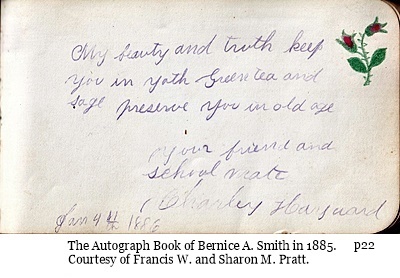 My beauty and truth keep
you in yoth Green tea and
Sage preserve you in old age
your friend and
School mate
Charley Hayward
Jan 4 1886
The Autograph Book of Bernice A. Smith in 1885. p22
Courtesy of Francis W. and Sharon M. Pratt.